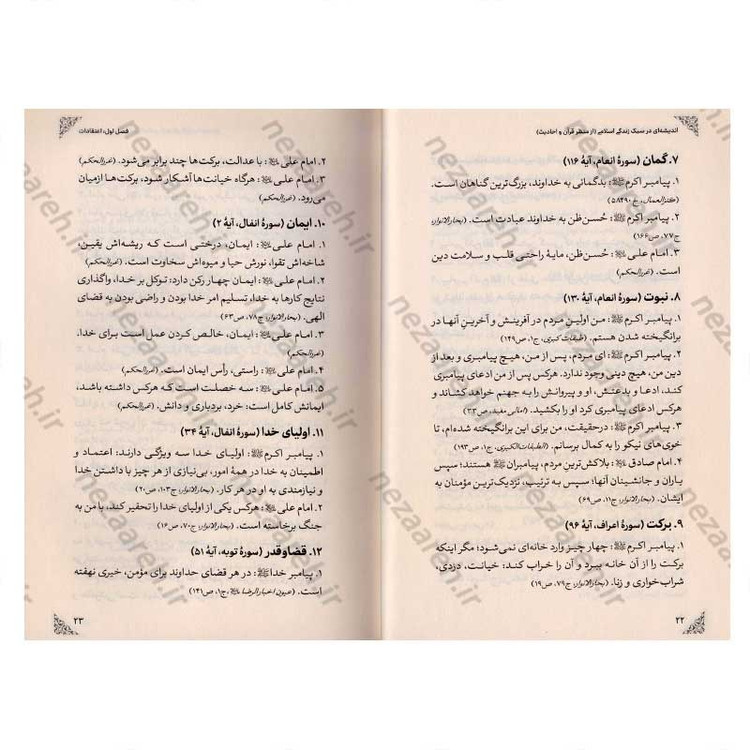 اندیشه‌ای در سبک زندگی اسلامی (از منظر قرآن و احادیث)
۷. گمان (سورهٔ انعام، آیهٔ ۱۱۶)
۱. پیامبر اکرم ﷺ: بدگمانی به خداوند، بزرگ‌ترین گناهان است.
(کنزالعمال، ح ۵۸۴۹)
۲. پیامبر اکرم ﷺ: حُسن‌ظن به خداوند عبادت است. (بحارالانوار،
ج۷۷، ص۱۶۶)
۳. امام علی: حُسن‌ظن، مایهٔ راحتی قلب و سلامت دین
است. (غررالحکم)
۸. نبوت (سورهٔ انعام، آیهٔ ۱۳۰)
۱. پیامبر اکرم ﷺ: من اولین مردم در آفرینش و آخرین آنها در
برانگیخته شدن هستم. (طبقات کبری، ج۱، ص۱۴۹)
۲. پیامبر اکرم ﷺ: ای مردم، پس از من، هیچ پیامبری و بعد از
دین من، هیچ دینی وجود ندارد. هرکس پس از من ادعای پیامبری
کند، ادعا و بدعتش، او و پیروانش را به جهنم خواهد کشاند و
هرکس ادعای پیامبری کرد او را بکشید. (امالی مفید، ص۳۳)
۳. پیامبر اکرم ﷺ: درحقیقت، من برای این برانگیخته شده‌ام، تا
خوی‌های نیکو را به کمال برسانم. (الطبقات الکبری، ج۱، ص۱۹۳)
۴. امام صادق: بلاکش‌ترین مردم، پیامبران هستند؛ سپس
یاران و جانشینان آنها؛ سپس به ترتیب، نزدیک‌ترین مؤمنان به
ایشان. (بحارالانوار، ج۱۱، ص۶۹)
۹. برکت (سورهٔ اعراف، آیهٔ ۹۶)
۱. پیامبر اکرم ﷺ: چهار چیز وارد خانه‌ای نمی‌شود؛ مگر اینکه
برکت را از آن خانه ببرد و آن را خراب کند: خیانت، دزدی،
شراب‌خواری و زنا. (بحارالانوار، ج۷۹، ص۱۹)
۲۲
فصل اول: اعتقادات
۲. امام علی: با عدالت، برکت‌ها چند برابر می‌شود. (غررالحکم)
۳. امام علی: هرگاه خیانت‌ها آشکار شود، برکت‌ها ازمیان
می‌رود. (غررالحکم)
۱۰. ایمان (سورهٔ انفال، آیهٔ ۲)
۱. امام علی: ایمان، درختی است که ریشه‌اش یقین،
شاخه‌اش تقوا، نورش حیا و میوه‌اش سخاوت است. (غررالحکم)
۲. امام علی: ایمان چهار رکن دارد: توکل بر خدا، واگذاری
نتایج کارها به خدا، تسلیم امر خدا بودن و راضی بودن به قضای
الهی. (بحارالانوار، ج۷۸، ص۶۳)
۳. امام علی: ایمان، خالص کردن عمل است برای خدا.
(غررالحکم)
۴. امام علی: راستی، رأس ایمان است. (غررالحکم)
۵. امام علی: سه خصلت است که هرکس داشته باشد،
ایمانش کامل است: خرد، بردباری و دانش. (غررالحکم)
۱۱. اولیای خدا (سورهٔ انفال، آیهٔ ۳۴)
۱. پیامبر اکرم ﷺ: اولیای خدا سه ویژگی دارند: اعتماد و
اطمینان به خدا در همهٔ امور، بی‌نیازی از هر چیز با داشتن خدا
و نیازمندی به او در هر کار. (بحارالانوار، ج۱۰۳، ص۲۰)
۲. امام علی: هرکس یکی از اولیای خدا را تحقیر کند، با من به
جنگ برخاسته است. (بحارالانوار، ج۷۰، ص۱۶)
۱۲. قضاوقدر (سورهٔ توبه، آیهٔ ۵۱)
۱. پیامبر خدا ﷺ: در هر قضای خداوند برای مؤمن، خیری نهفته
است. (عیون اخبارالرضا، ج۱، ص۱۴۱)
۲۳
nezaareh.ir